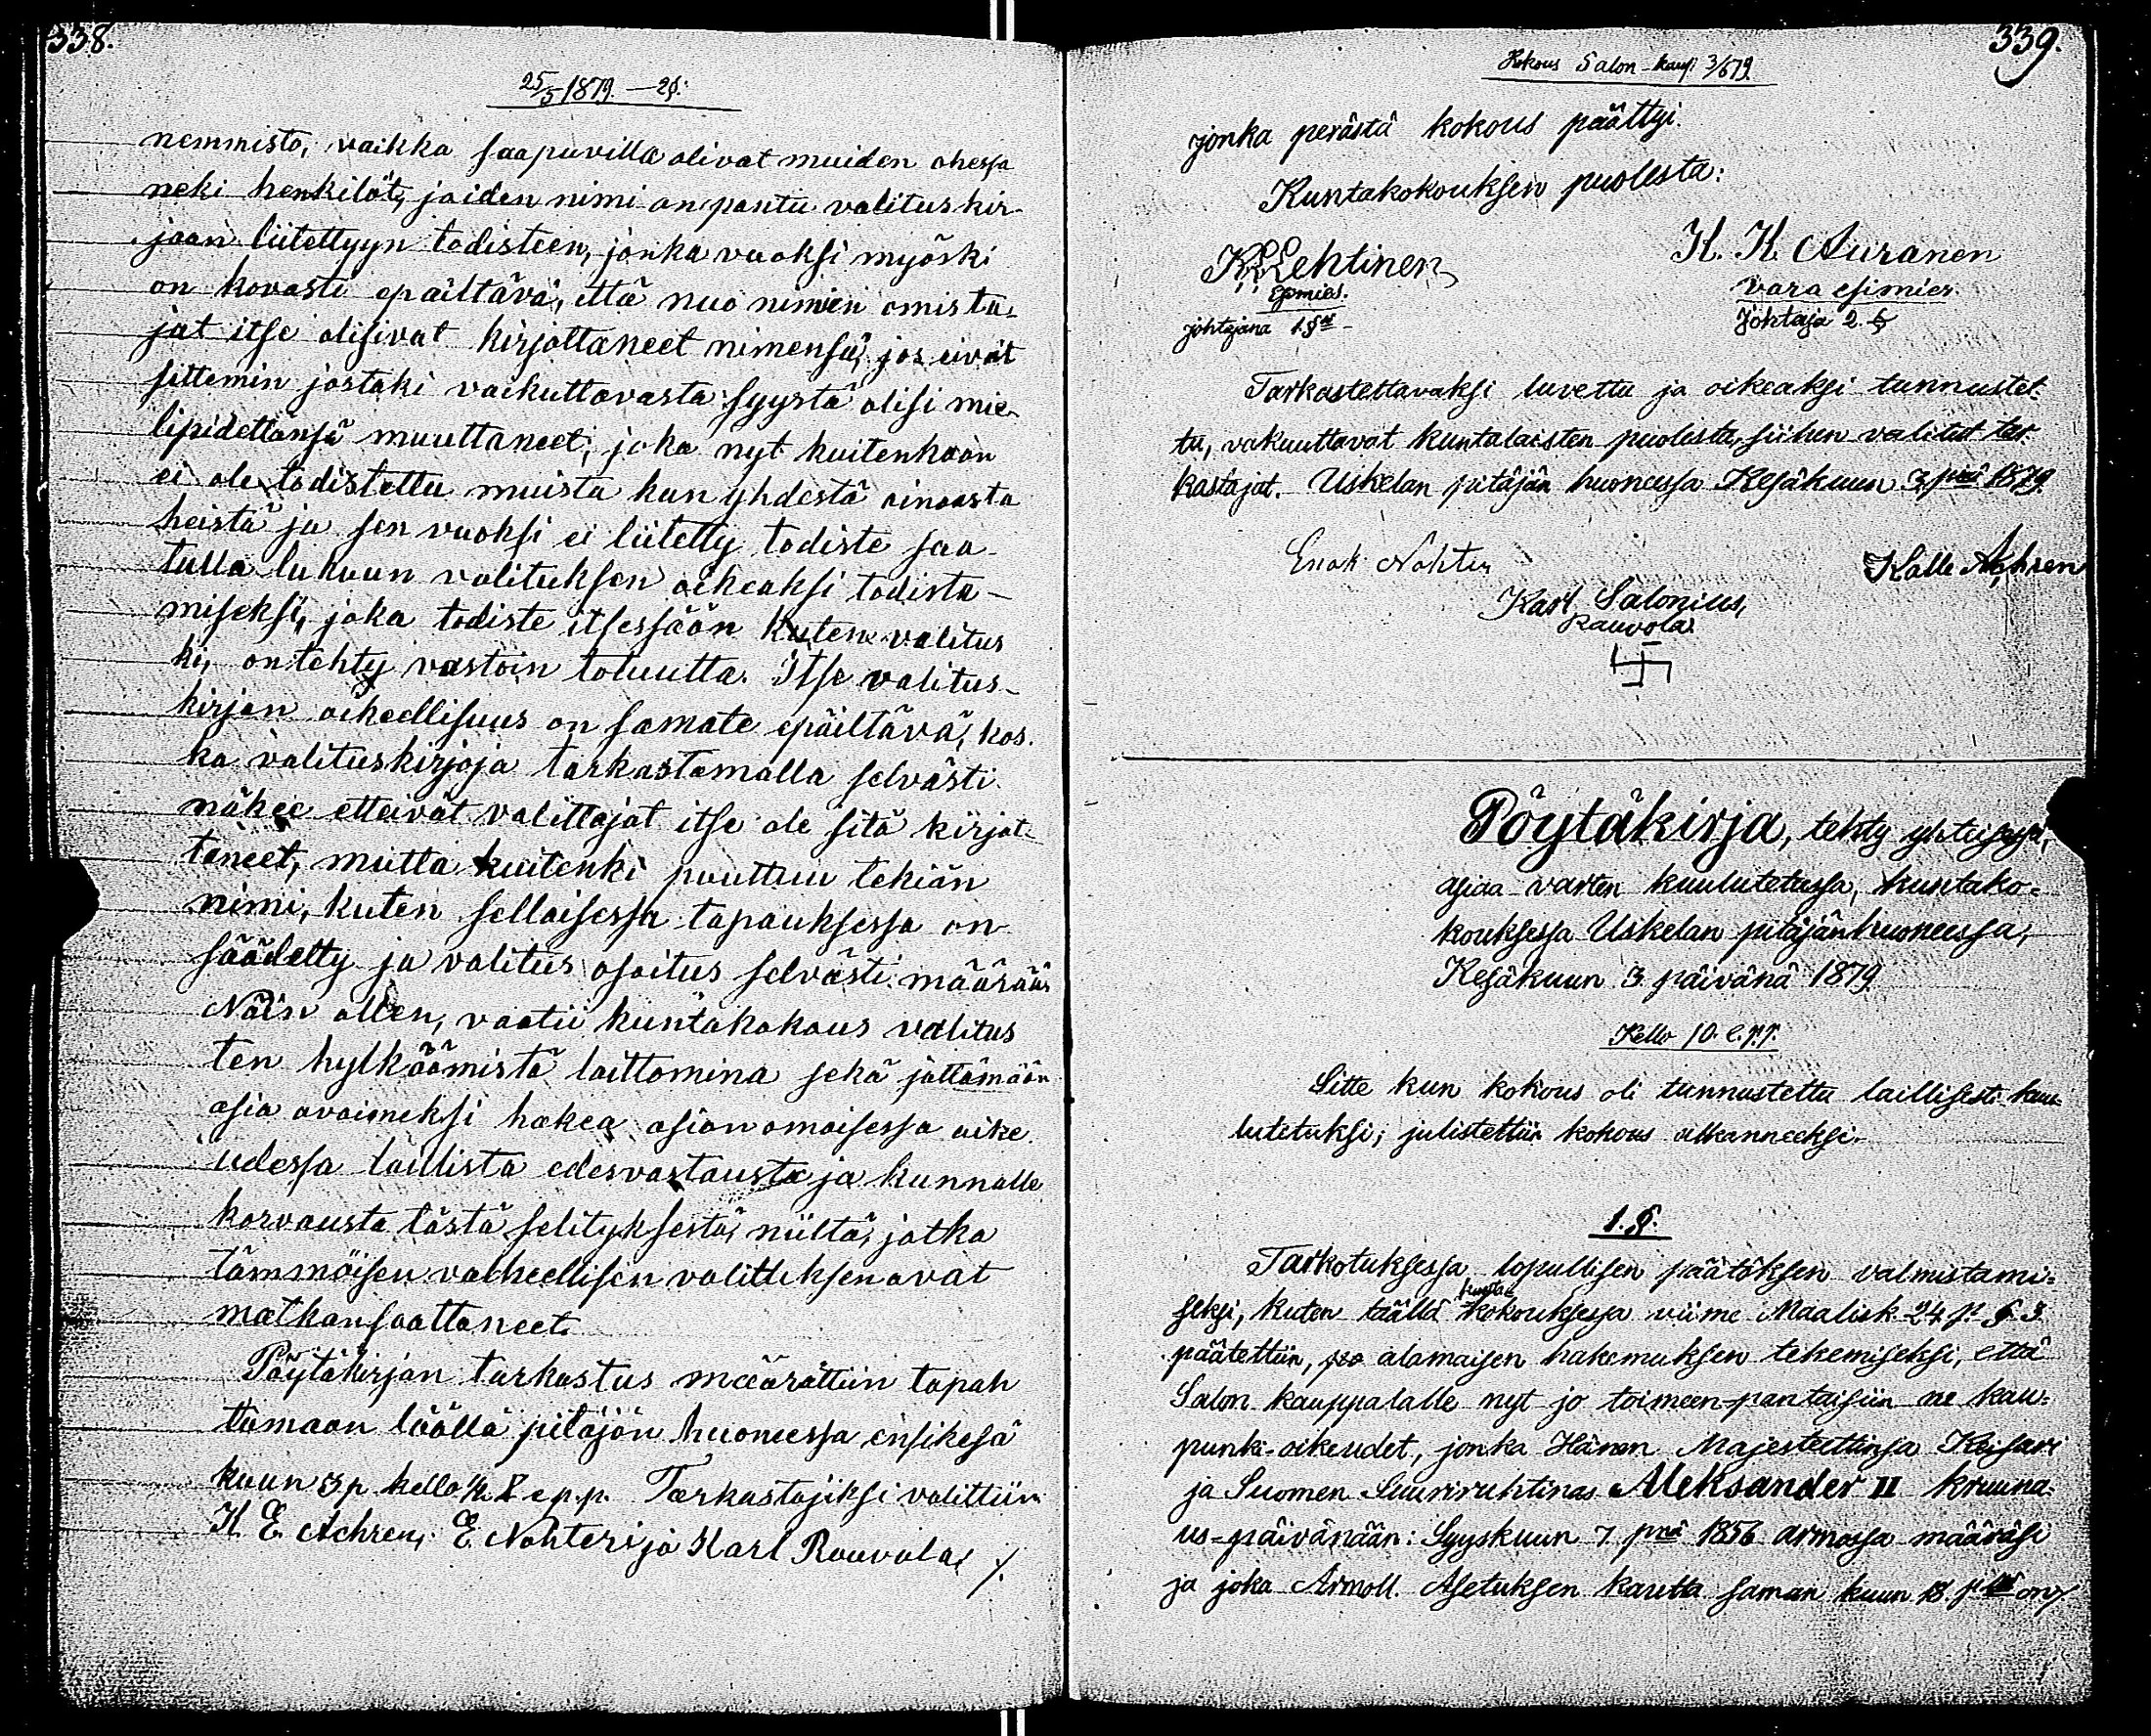 338.
25/5 1879. — 2§.
nemmistö, vaikka saapuvilla olivat muiden ohessa
neki henkilöt, joiden nimi on pantu valituskir-
jaan liitettyyn todisteen, jonka vuoksi myöski
on kovasti epäiltävä, että nuo nimien omista-
jat itse olisivat kirjoittaneet nimensä, jos eivät
sittemin jostaki vaikuttavasta syystä olisi mie-
lipidettänsä muuttaneet, joka nyt kuitenkaan
ei ole todistettu muista kun yhdestä ainoasta
heistä ja sen vuoksi ei liitetty todiste saa
tulla lukuun valituksen oikeaksi todista-
miseksi, joka todiste itsessään kuten valitus
ki, on tehty vastoin totuutta. Itse valitus-
kirjan oikeellisuus on samate epäiltävä, kos-
ka valituskirjoja tarkastamalla selvästi
näkee etteivät valittajat itse ole sitä kirjot-
taneet, mutta kuitenki puuttuu tekiän
nimi, kuten sellaisessa tapauksessa on
säädetty ja valitus osoitus selvästi määrää.
Näin ollen, vaatii kuntakokous valitus
ten hylkäämistä laittomina sekä jättämään
asia avoimeksi hakea asianomaisessa oike
udessa laillista edesvastausta ja kunnalle
korvausta tästä selityksestä, niiltä, jotka
tämmöisen vaheellisen valituksen ovat
matkansaattaneet.
Pöytäkirjan tarkastus määrättiin tapah
tumaan täällä pitäjän huoneessa ensikesä
kuun 3 p kello ½ 8 e.p.p. Tarkastajiksi valittiin
K. E. Achren, E. Nohteri ja Karl Rauvola. /.
339.
Kokous Salon kaup. 3/6 79
jonka perästä kokous päättyi.
Kuntakokouksen puolesta:
K. Lehtinen
Esmies.
johtajana 1.§
K. K. Auranen
vara esimies.
Johtaja 2. §
Tarkastettavaksi luvettu ja oikeaksi tunnustet-
tu, vakuuttavat kuntalaisten puolesta, siihen valitut tar-
kastajat. Uskelan pitäjän huoneessa Kesäkuun 3 pnä 1879.
Enok Nohter
Kalle Achren
Karl Salonius,
Rauvola
Pöytäkirja, tehty yhteisessä,
asiaa varten kuulutetussa, kuntako-
kouksessa Uskelan pitäjänhuoneessa,
Kesäkuun 3 päivänä 1879
Kello 10. e.p.p.
Sitte kun kokous oli tunnustettu laillisesti kuu-
lutetuksi; julistettiin kokous alkanneeksi.
1.§.
Tarkotuksessa lopullisen päätöksen valmistami-
seksi, kuten täällä kunta kokouksessa viime Maalisk. 24 p. § 3
päätettiin, alamaisen hakemuksen tekemiseksi, että
Salon kauppalalle nyt jo toimeen-pantaisiin ne kau-
punki-oikeudet, jonka Hänen Majesteettinsa Keisari
ja Suomen Suuriruhtinas Aleksander II kruuna-
us-päivänään: Syyskuun 7 pnä 1856 armossa määräsi
ja joka Armoll. Asetuksen kautta saman kuun 18. p. on /.